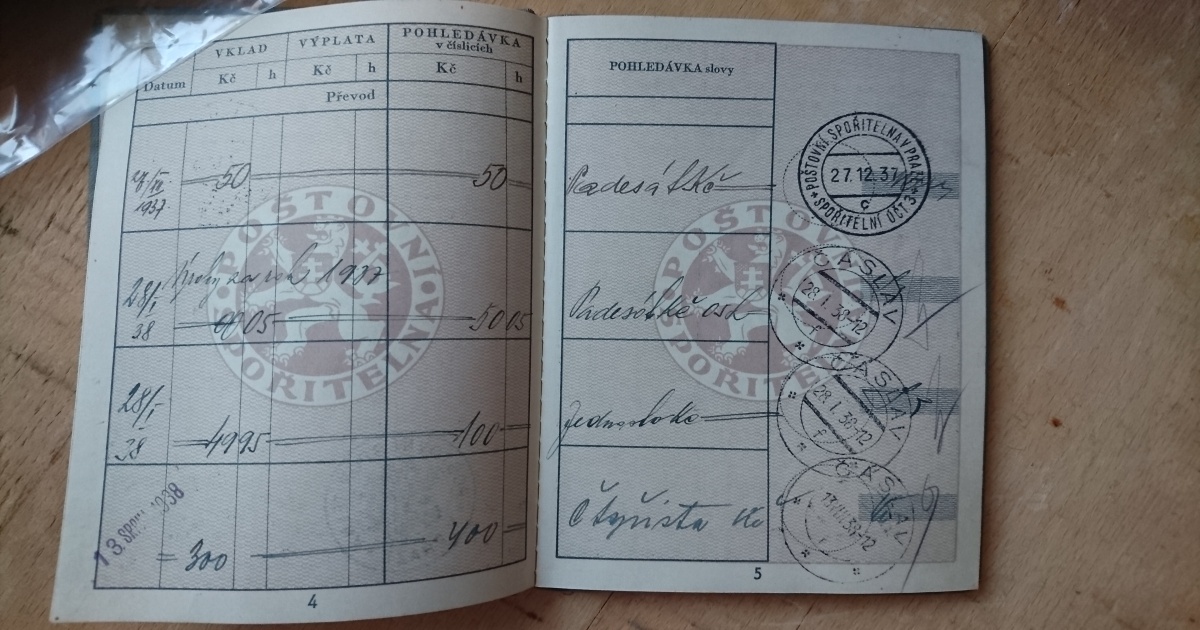 VKLAD VÝPLATA POHLEDÁVKA
v číslicích
Datum Kč h Kč h Kč h
Převod
1937 50 50
28/I Úroky za rok 1937
38 0 05 50 05
28/I
38 49 95 100
13. 1938
= 300 400 =
POŠTOVNÍ
SPOŘITELNA
4
POHLEDÁVKA slovy
Padesát Kč
Padesát Kč 05 h
Jednosto Kč
Čtyřista Kč
POŠTOVNÍ
SPOŘITELNA
POŠTOVNÍ SPOŘITELNA V PRAZE
27.12.37
č
SPOŘITELNÍ ÚČT 3
ČÁSLAV
28.I.38-12
f
ČÁSLAV
28.I.38-12
f
ČÁSLAV
38-12
5